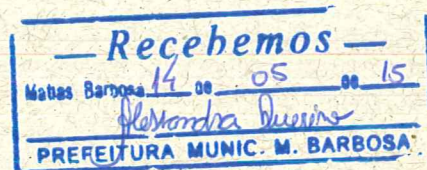 — Recebemos —
Matias Barbosa 14 de 05 de 15
Alessandra
PREFEITURA MUNIC. M. BARBOSA